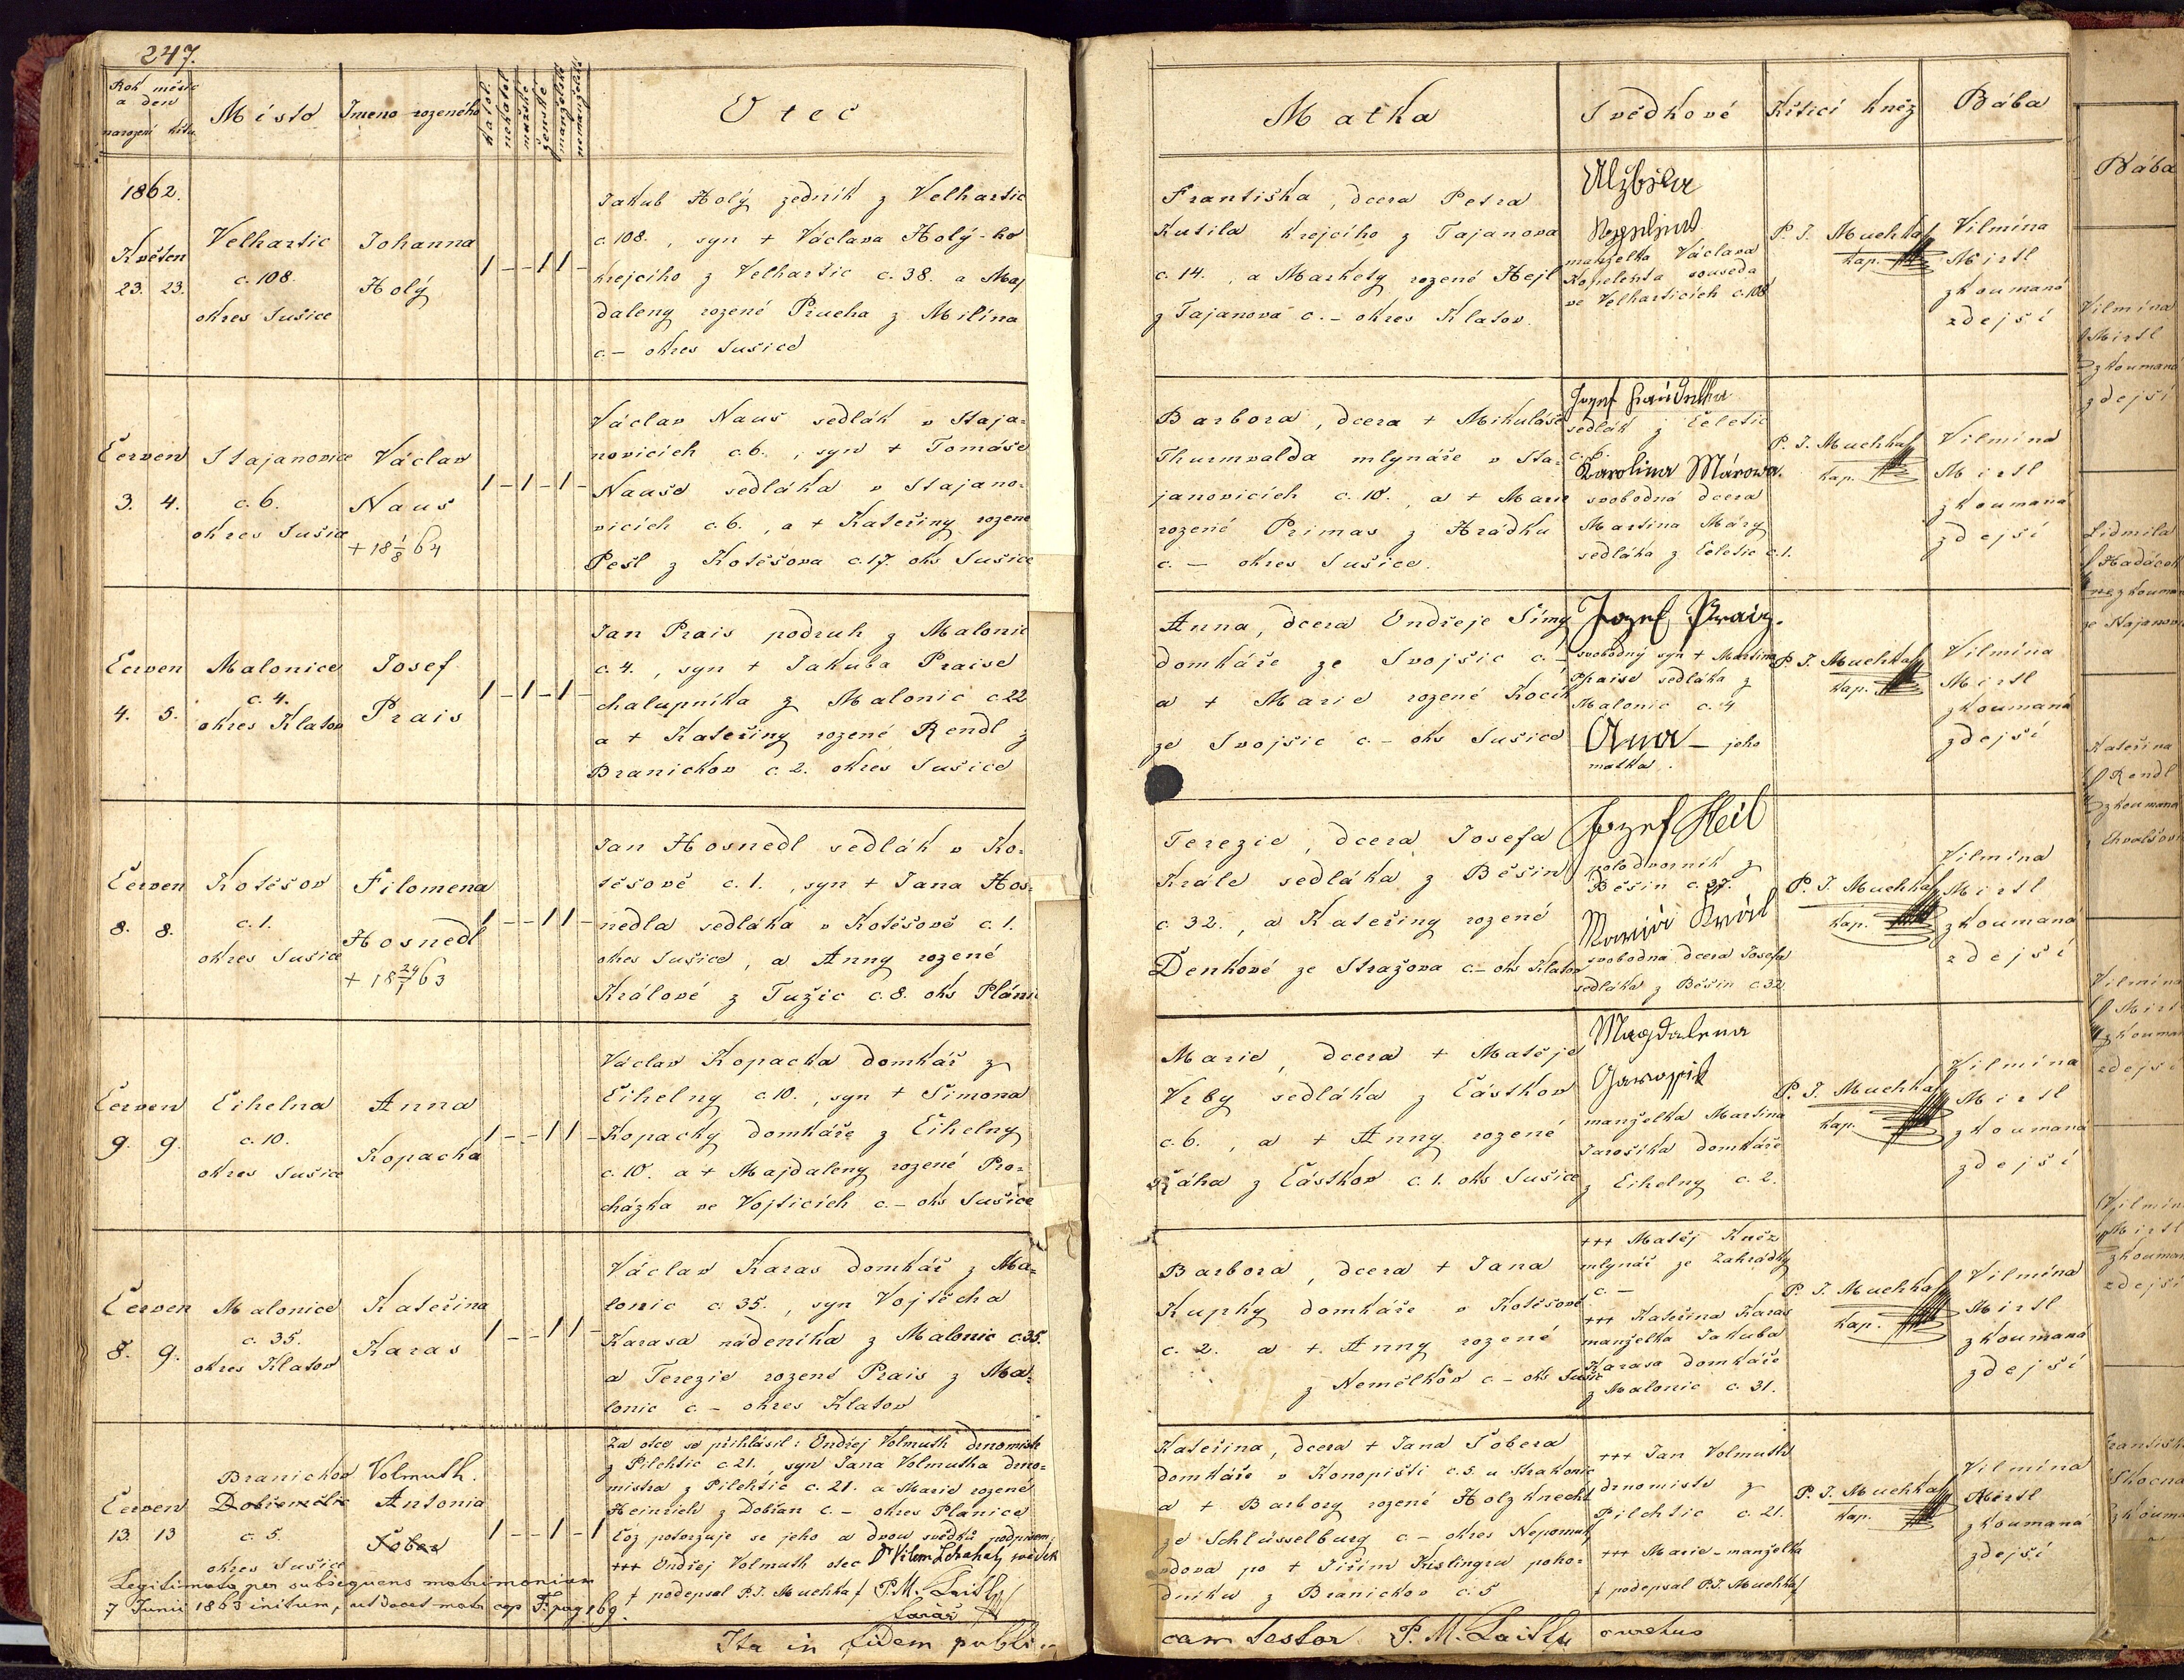 247.
Rok měsíc
a den
narození křtu
Místo
Jmeno rozeného
katol.
nekatol
mužské
ženské
manželské
nemanželské
Otec
Matka
Svědkové
Křtící kněz
Bába
1862.
Květen
23. 23.
Velhartic
c. 108.
okres Sušice
Johanna
Holý
1 - - 1 1 -
Jakub Holý zedník z Velhartic
c. 108. , syn + Václava Holý-ho
krejcího z Velhartic c. 38. a Maj
daleny rozené Prucha z Milína
c. – okres Sušice
Františka, dcera Petra
Kutila krejcího z Tajanova
c. 14. , a Markety rozené Hejl
z Tajanova c. – okres Klatov.
Alžběta
manželka Václava
Kopelenta souseda
ve Velharticích c. 108
P. J. Muchka
kap.
Vilmína
Mirtl
zkoumaná
zdejší
Červen
3. 4.
Stajanovice
c. 6.
okres Sušice
Václav
Naus
+ 18 1/8 64
1 - 1 - 1 -
Václav Naus sedlák v Staja-
novicích c. 6. , syn + Tomáše
Nause sedláka v Stajano-
vicích c. 6. , a + Kateřiny rozené
Pešl z Kotěšova c. 17. oks Sušice
Barbora, dcera + Mikuláše
Thurmvalda mlynáře v Sta-
janovicích c. 10. , a + Marie
rozené Primas z Hrádku
c. – okres Sušice.
Jozef
sedlák z Čeletic
c. 6.
Karolina Márowa.
svobodná dcera
Martina Máry
sedláka z Čeletic c. 1.
P. J. Muchka
kap.
Vilmína
Mirtl
zkoumaná
zdejší
Červen
4. 5.
Malonice
c. 4.
okres Klatov
Josef
Prais
1 - 1 - 1 -
Jan Prais podruh z Malonic
c. 4. , syn + Jakuba Praise
chalupníka z Malonic c. 22
a + Kateřiny rozené Rendl z
Branickov c. 2. okres Sušice
Anna, dcera Ondřeje Šímy
domkáře ze Svojšic c. –
a + Marie rozené Kocík
ze Svojšic c. – oks Sušice
Jozef Praiz.
svobodný syn + Martina
Praise sedláka z
Malonic c. 4
Ana – jeho
matka.
P. J. Muchka
kap.
Vilmína
Mirtl
zkoumaná
zdejší
Červen
8. 8.
Kotěšov
c. 1.
okres Sušice
Filomena
Hosnedl
+ 18 24/1 63
1 - - 1 1 -
Jan Hosnedl sedlák v Ko-
těšově c. 1. , syn + Jana Hos-
nedla sedláka v Kotěšově c. 1.
okres Sušice, a Anny rozené
Králové z Tužic c. 8. oks Plánic
Terezie, dcera Josefa
Krále sedláka z Běšin
c. 32. , a Kateřiny rozené
Denkové ze Stražova c. – oks Klatov
Jozef Heil
polodvorník z
Běšin c. 37.
Mariá Král
svobodná dcera Josefa
sedláka z Běšin c. 32
P. J. Muchka
kap.
Vilmína
Mirtl
zkoumaná
zdejší
Červen
9. 9.
Čihelna
c. 10.
okres Sušice
Anna
Kopacka
1 - - 1 1 -
Václav Kopacka domkář z
Čihelny c. 10. , syn + Šimona
Kopacky domkáře z Čihelny
c. 10. a + Majdaleny rozené Pro-
cházka ve Vojticích c. – oks Sušice
Marie, dcera + Matěje
Vrby sedláka z Částkov
c. 6. , a + Anny rozené
Řáha z Částkov c. 1. oks Sušice
Magdalena
manželka Martina
Jarošíka domkáře
z Čihelny c. 2.
P. J. Muchka
kap.
Vilmína
Mirtl
zkoumaná
zdejší
Červen
8. 9.
Malonice
c. 35.
okres Klatov
Kateřina
Karas
1 - - 1 1 -
Václav Karas domkář z Ma-
lonic c. 35. , syn Vojtěcha
Karasa nádeníka z Malonic c. 35.
a Terezie rozené Prais z Ma-
lonic c. – okres Klatov
Barbora, dcera + Jana
Kupky domkáře v Kotěšově
c. 2. a + Anny rozené
z Nemělkov c – oks Sušic
+++ Matěj Kněz
mlynář ze Zahrádky
c. –
+++ Kateřina Karas
manželka Jakuba
Karasa domkáře
z Malonic c. 31.
P. J. Muchka
kap.
Vilmína
Mirtl
zkoumaná
zdejší
Červen
13. 13
Branickov
c. 5.
okres Sušice
Volmuth.
Antonia
Šober
1 - - 1 - 1
Za otce se přihlásil: Ondřej Volmuth drnomistr
z Pilchtic c. 21. , syn Jana Volmutha drno-
mistra z Pilchtic c. 21. a Marie rozené
Heinrich z Dobřan c. – okres Planice
Což potvrzuje se jeho a dvou svědků podpisem.
+++ Ondřej Volmuth otec Dr Vilem svědek
+ podepsal P. J. Muchka P. M.
farář
Legitimata per subsequens matrimonium
7 Junii 1863 initum, ut docet matr cop pag 169.
Kateřina, dcera + Jana Šobera
domkáře v Konopišti c. 5. u Strakonic
a + Barbory rozené Holzknecht
ze Schlüsselburg c – okres Nepomuk,
vdova po + Jiřím Kislingru poho-
dníku z Branickov c. 5
+++ Jan Volmuth
drnomistr z
Pilchtic c. 21.
+++ Marie – manželka
+ podepsal P. J. Muchka
P. J. Muchka
kap.
Vilmína
Mirtl
zkoumaná
zdejší
Ita in fidem publi-
cam testor P. M. curatus
Bába
Vilmína
Mirtl
zkoumaná
zdejší
Lidmila
Kateřina
Rendl
zkoumana
Vilmína
zdejší
zdejší